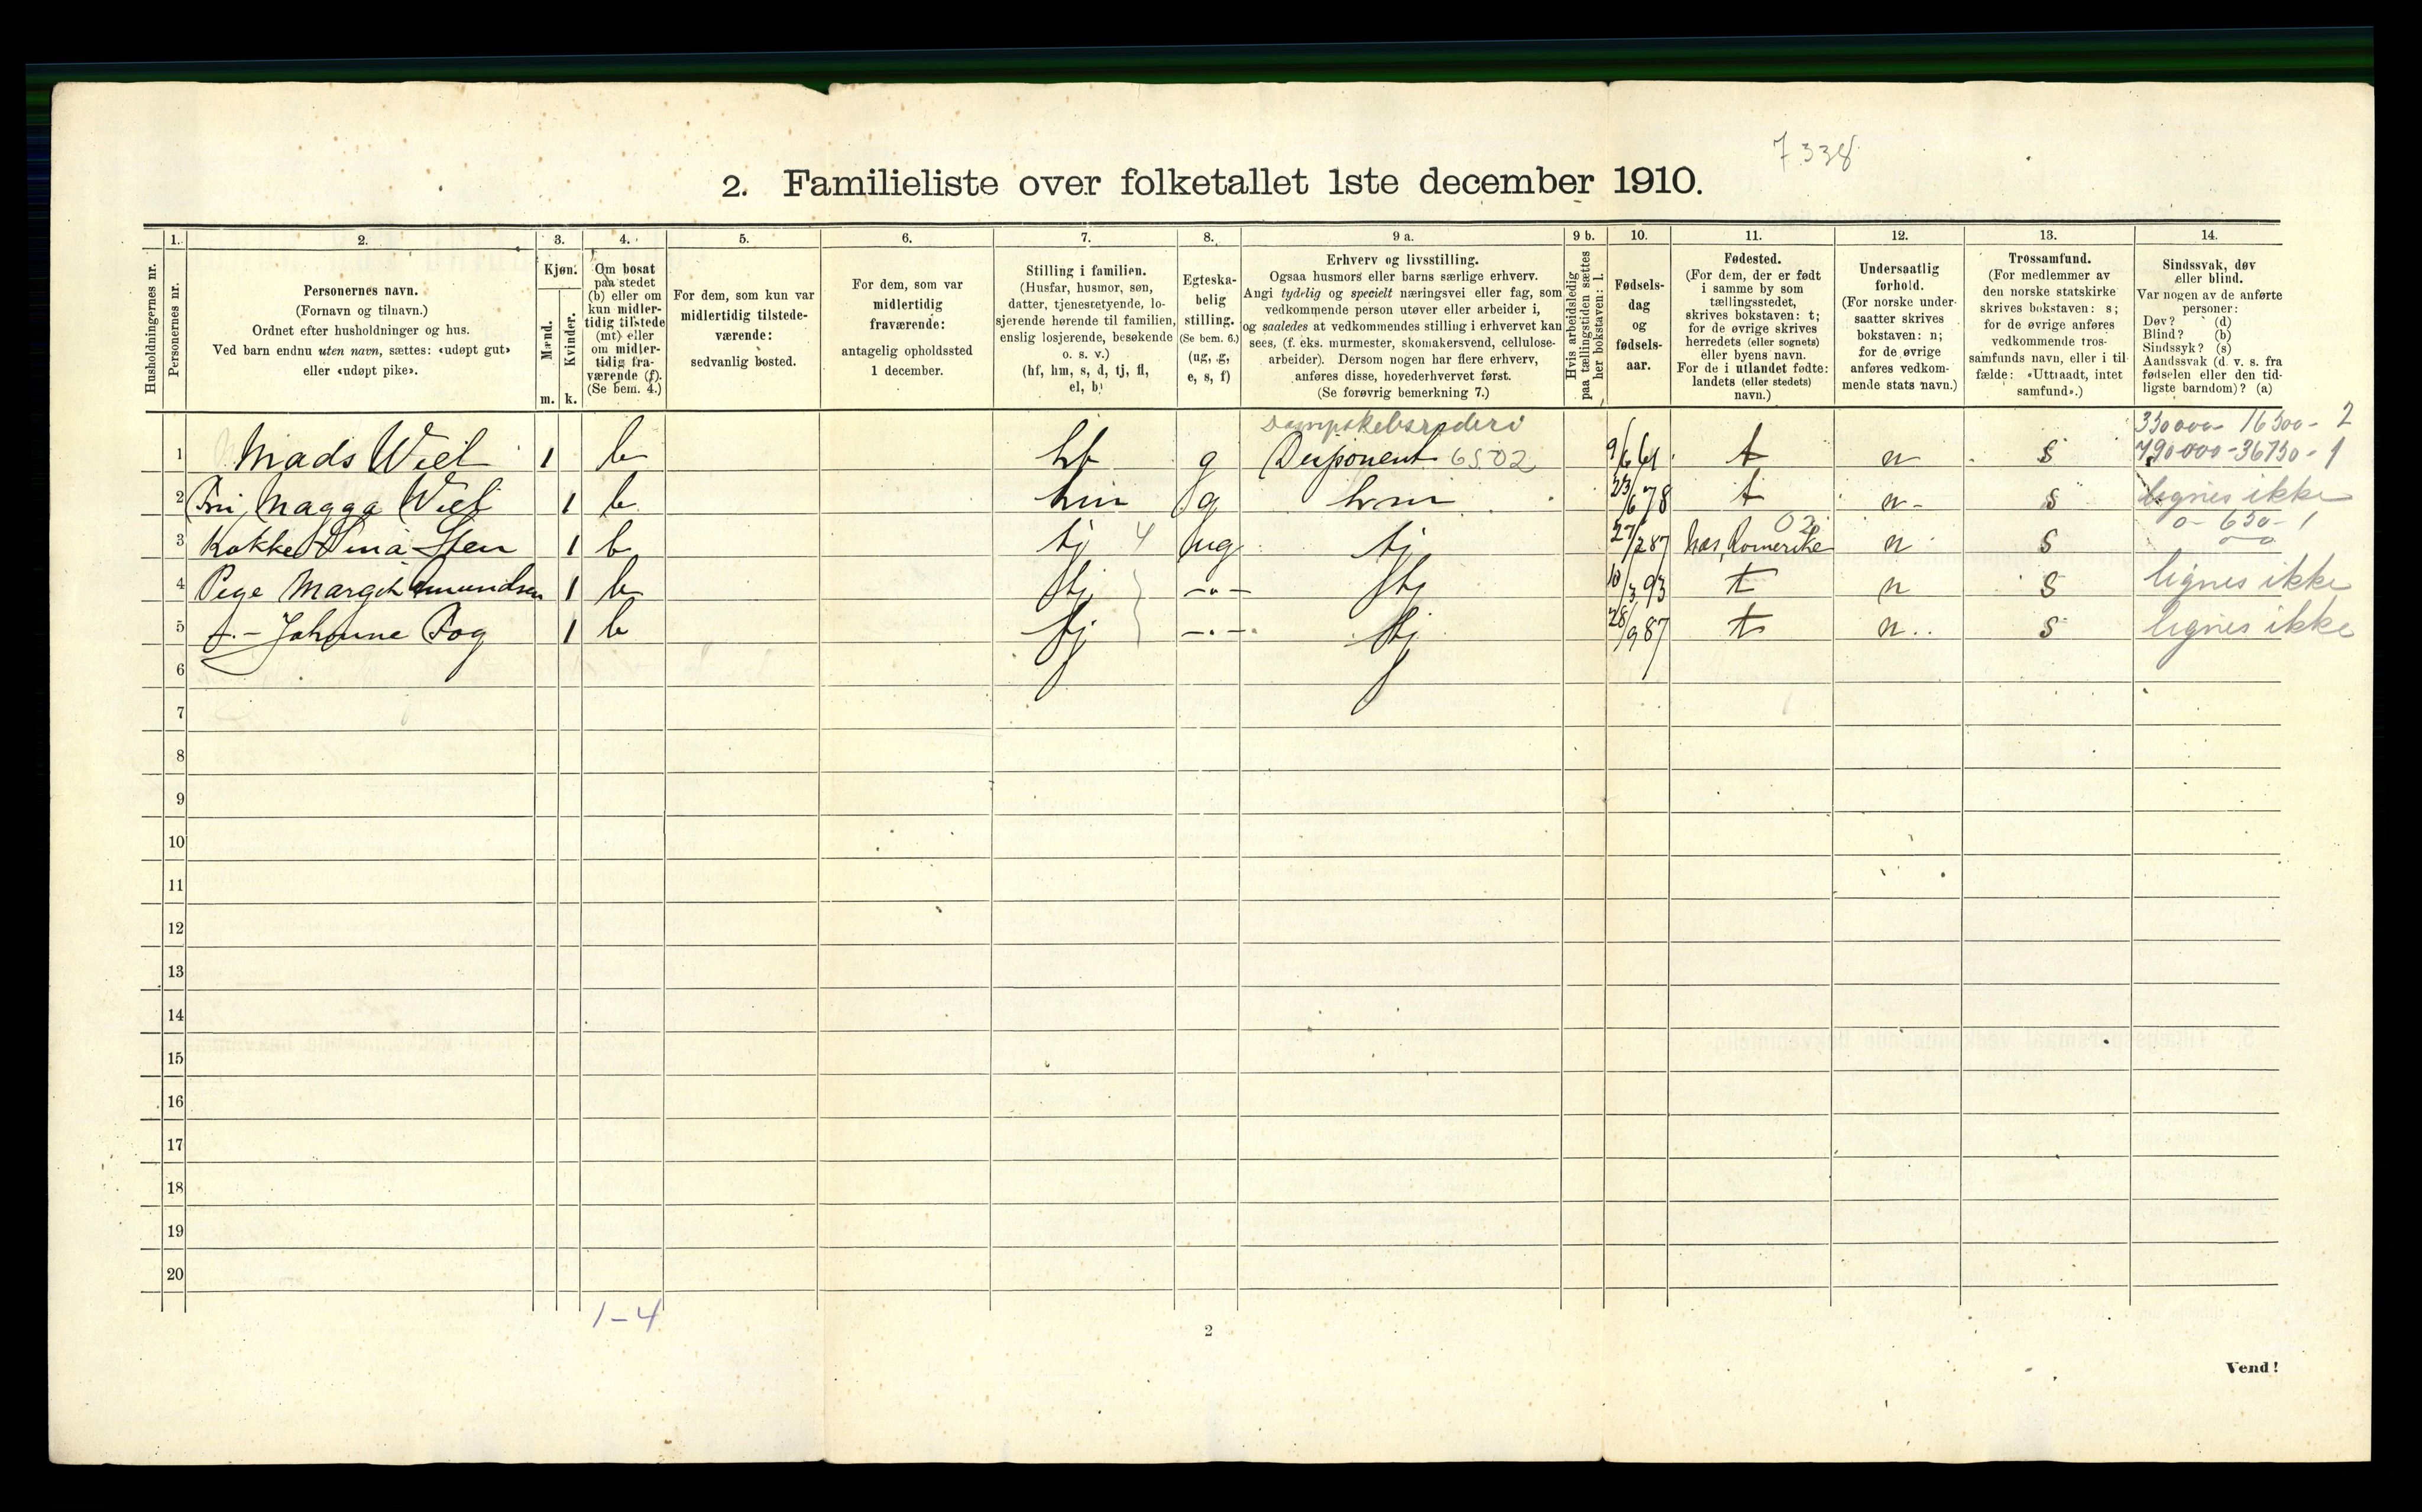 7338
2. Familieliste over folketallet 1ste december 1910.
1. 2. 3. 4. 5. 6. 7. 8. 9 a. 9 b. 10. 11. 12. 13. 14.
Husholdningernes nr.
Personernes nr.
Personernes navn.
(Fornavn og tilnavn.)
Ordnet efter husholdninger og hus.
Ved barn endnu uten navn, sættes: «udøpt gut»
eller «udøpt pike».
Kjøn.
Mænd.
Kvinder.
m. k.
Om bosat
paa stedet
(b) eller om
kun midler-
tidig tilstede
(mt) eller
om midler-
tidig fra-
værende (f).
(Se bem. 4.)
For dem, som kun var
midlertidig tilstede-
værende:
sedvanlig bosted.
For dem, som var
midlertidig
fraværende:
antagelig opholdssted
1 december.
Stilling i familien.
(Husfar, husmor, søn,
datter, tjenestetyende, lo-
sjerende hørende til familien,
enslig losjerende, besøkende
o. s. v.)
(hf, hm, s, d, tj, fl,
el, b)
Egteska-
belig
stilling.
(Se bem. 6.)
(ug, g,
e, s, f)
Erhverv og livsstilling.
Ogsaa husmors eller barns særlige erhverv.
Angi tydelig og specielt næringsvei eller fag, som
vedkommende person utøver eller arbeider i,
og saaledes at vedkommendes stilling i erhvervet kan
sees, (f. eks. murmester, skomakersvend, cellulose-
arbeider). Dersom nogen har flere erhverv,
anføres disse, hovederhvervet først.
(Se forøvrig bemerkning 7.)
Hvis arbeidsledig
paa tællingstiden sættes
her bokstaven: l.
Fødsels-
dag
og
fødsels-
aar.
Fødested.
(For dem, der er født
i samme by som
tællingsstedet,
skrives bokstaven: t;
for de øvrige skrives
herredets (eller sognets)
eller byens navn.
For de i utlandet fødte:
landets (eller stedets)
navn.)
Undersaatlig
forhold.
(For norske under-
saatter skrives
bokstaven: n;
for de øvrige
anføres vedkom-
mende stats navn.)
Trossamfund.
(For medlemmer av
den norske statskirke
skrives bokstaven: s;
for de øvrige anføres
vedkommende tros-
samfunds navn, eller i til-
fælde: «Uttraadt, intet
samfund».)
Sindssvak, døv
eller blind.
Var nogen av de anførte
personer:
Døv? (d)
Blind? (b)
Sindssyk? (s)
Aandssvak (d. v. s. fra
fødselen eller den tid-
ligste barndom)? (a)
Dampskebsrederi 350000 - 16500 - 2
1 Mads Wiel 1 b hf g Disponent 6502 9/6 61 t n s 790000 - 36750 - 1
2 Fru Magga Wiel 1 b hm g hm 23/6 78 t n - s lignes ikke
02 0 - 650 - 1
3 Kokke Lina Sten 1 b tj 4 ug tj 27/2 87 Nes, Romerike n s
4 Pige Margit Amundsen 1 b tj -"- tj 10/3 93 t n s lignes ikke
5 -"- Johanne Fog 1 b tj -"- tj 28/9 87 t n s lignes ikke
6
7
8
9
10
11
12
13
14
15
16
17
18
19
20
1-4
2
Vend!